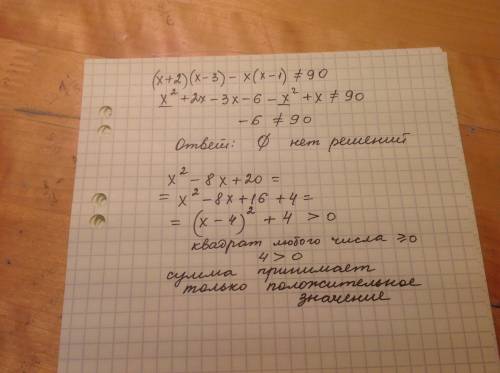 (x+2)(x-3) - x(x-1) ≠ 90
x² + 2x - 3x - 6 - x² + x ≠ 90
-6 ≠ 90
Ответ: ∅ нет решений
x² - 8x + 20 =
= x² - 8x + 16 + 4 =
= (x-4)² + 4 > 0
квадрат любого числа ≥ 0
4 > 0
сумма принимает
только положительное
значение